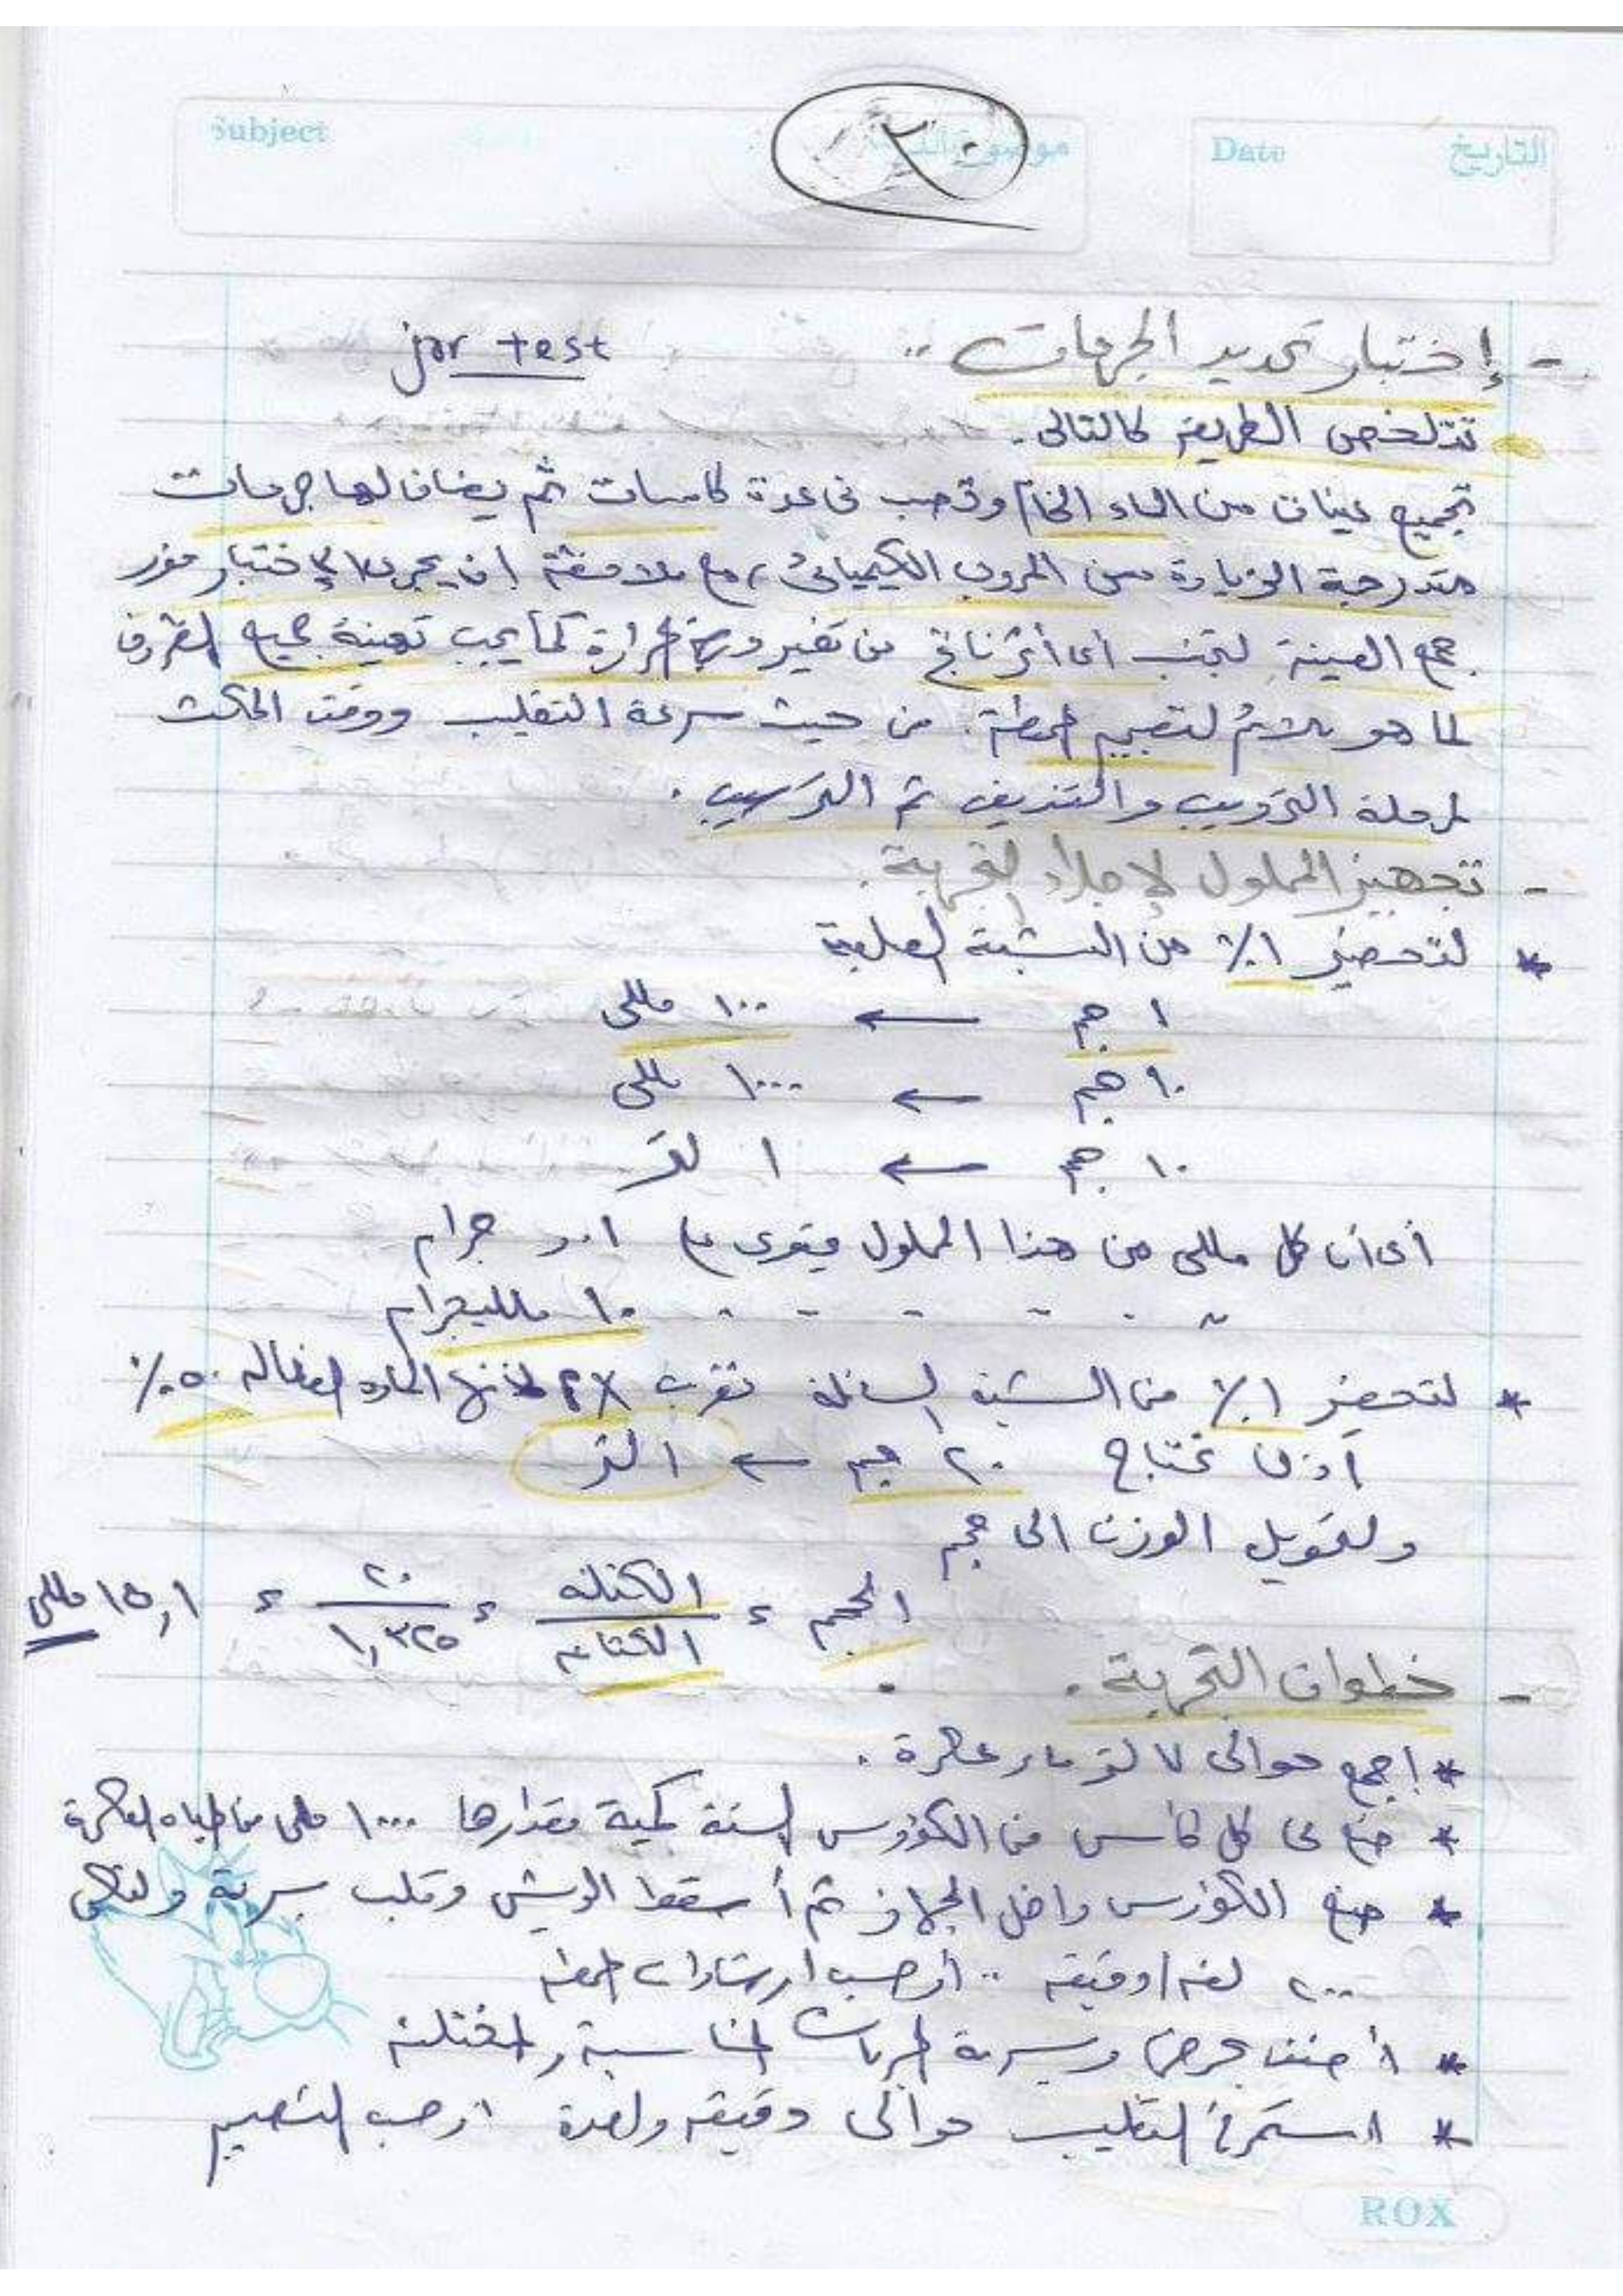 Subject
موضوع الدرس
Date
التاريخ
٣٠
- إختبار تحديد الجرعات .. jar test
تتلخص الطريقة كالتالى .
تجميع عينات من الماء الخام وتصب فى عدة كاسات ثم يضاف لها جرعات
متدرجة الزيادة من المروب الكيميائى ، مع ملاحظة ان يجرى الإختبار فور
جمع العينة لتجنب أى أثر ناتج من تغير درجة الحرارة كما يجب تهيئة جميع الظروف
لما هو ملائم لتصميم المحطة . من حيث سرعة التقليب ووقت المكث
لمرحلة الترويب والتنديف ثم الترسيب .
- تجهيز المحلول لإجراء التجربة .
* لتحضير ١٪ من الشبة الصلبة
١ جم ← ١٠٠ مللى
١٠ جم ← ١٠٠٠ مللى
١٠ جم ← ١ لتر
أى أن كل مللى من هذا المحلول يحتوى على ٠.٠١ جرام
〃 - - - - - ١٠ ملليجرام
* لتحضير ١٪ من الشبة السائلة نضرب ×٢ لأن المادة الفعالة ٥٠٪
إذن نحتاج ٢٠ جم ← ١ لتر
ولتحويل الوزن الى حجم
الحجم = الكتلة / الكثافة = ٢٠ / ١,٣٢٥ = ١٥,١ مللى
- خطوات التجربة .
* إجمع حوالى ٧ لتر ماء عكرة .
* ضع فى كل كأس من الكؤوس الستة كمية مقدارها ١٠٠٠ مللى من المياه العكرة
* ضع الكؤوس داخل الجهاز ثم أسقط الريش وقلب بسرعة ولتكن
٢٠٠ لفة/دقيقة .. أو حسب إرشادات المحطة
* أضف بحرص وبسرعة الجرعات المناسبة والمختلفة
* استمر فى التقليب حوالى دقيقة واحدة أو حسب التصميم
ROX